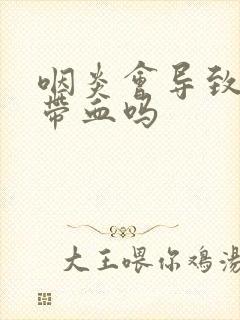 咽炎會导致
帶血吗
大王喂你鸡湯